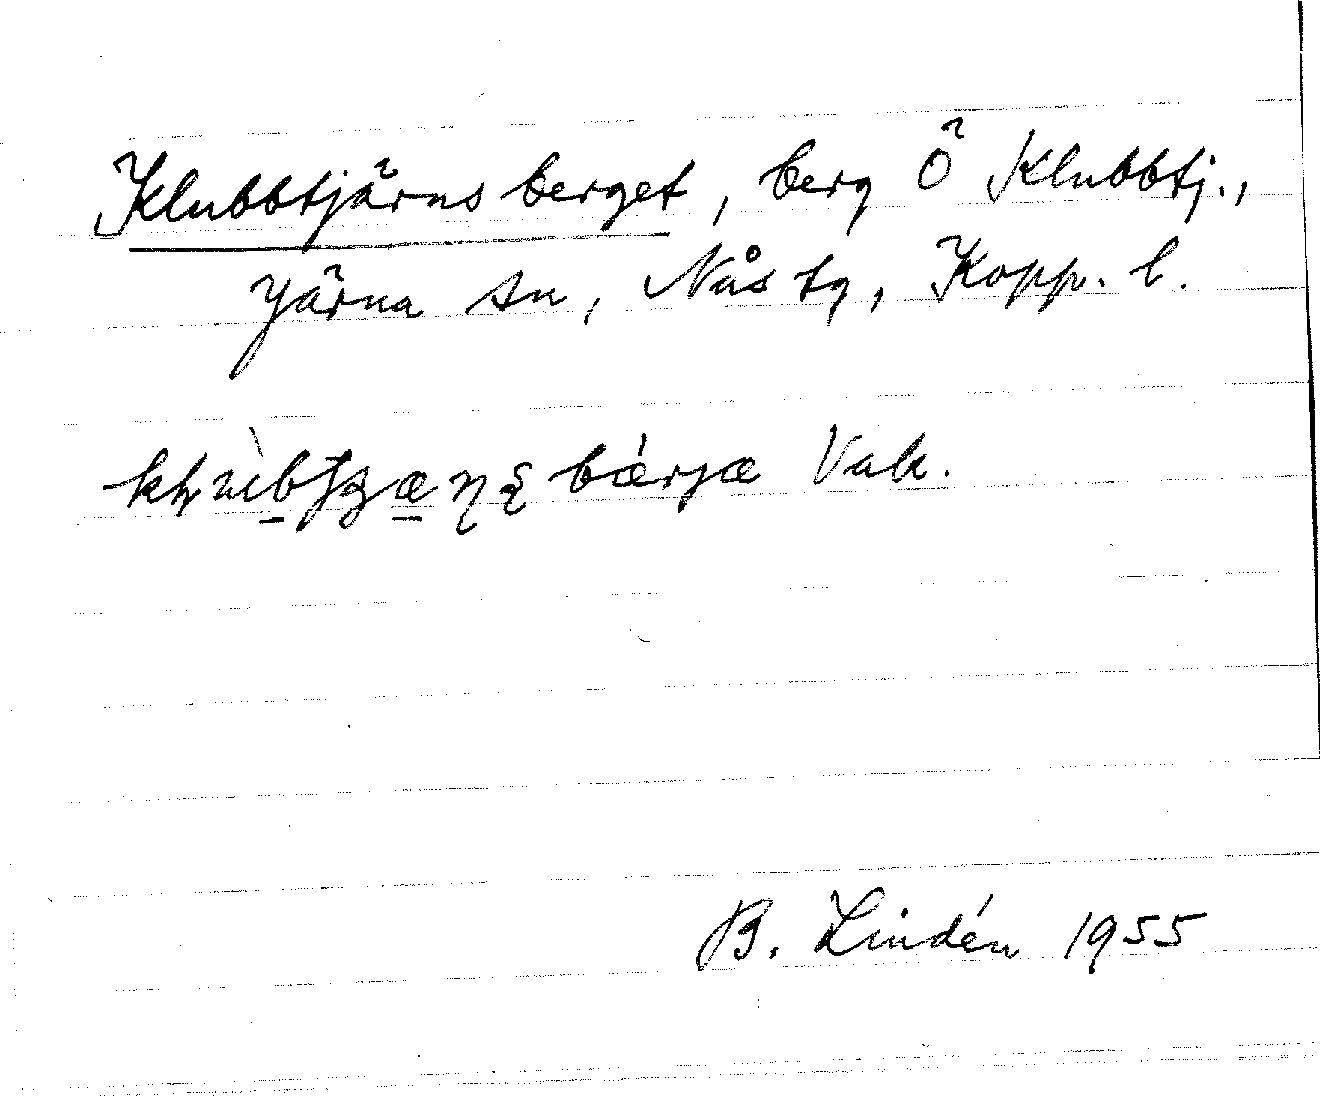 Klubbtjärnsberget, berg Ö Klubbtj.,
Järna sn, Nås tg, Kopp. l.
bárjæ Vak.
B. Lindén 1955